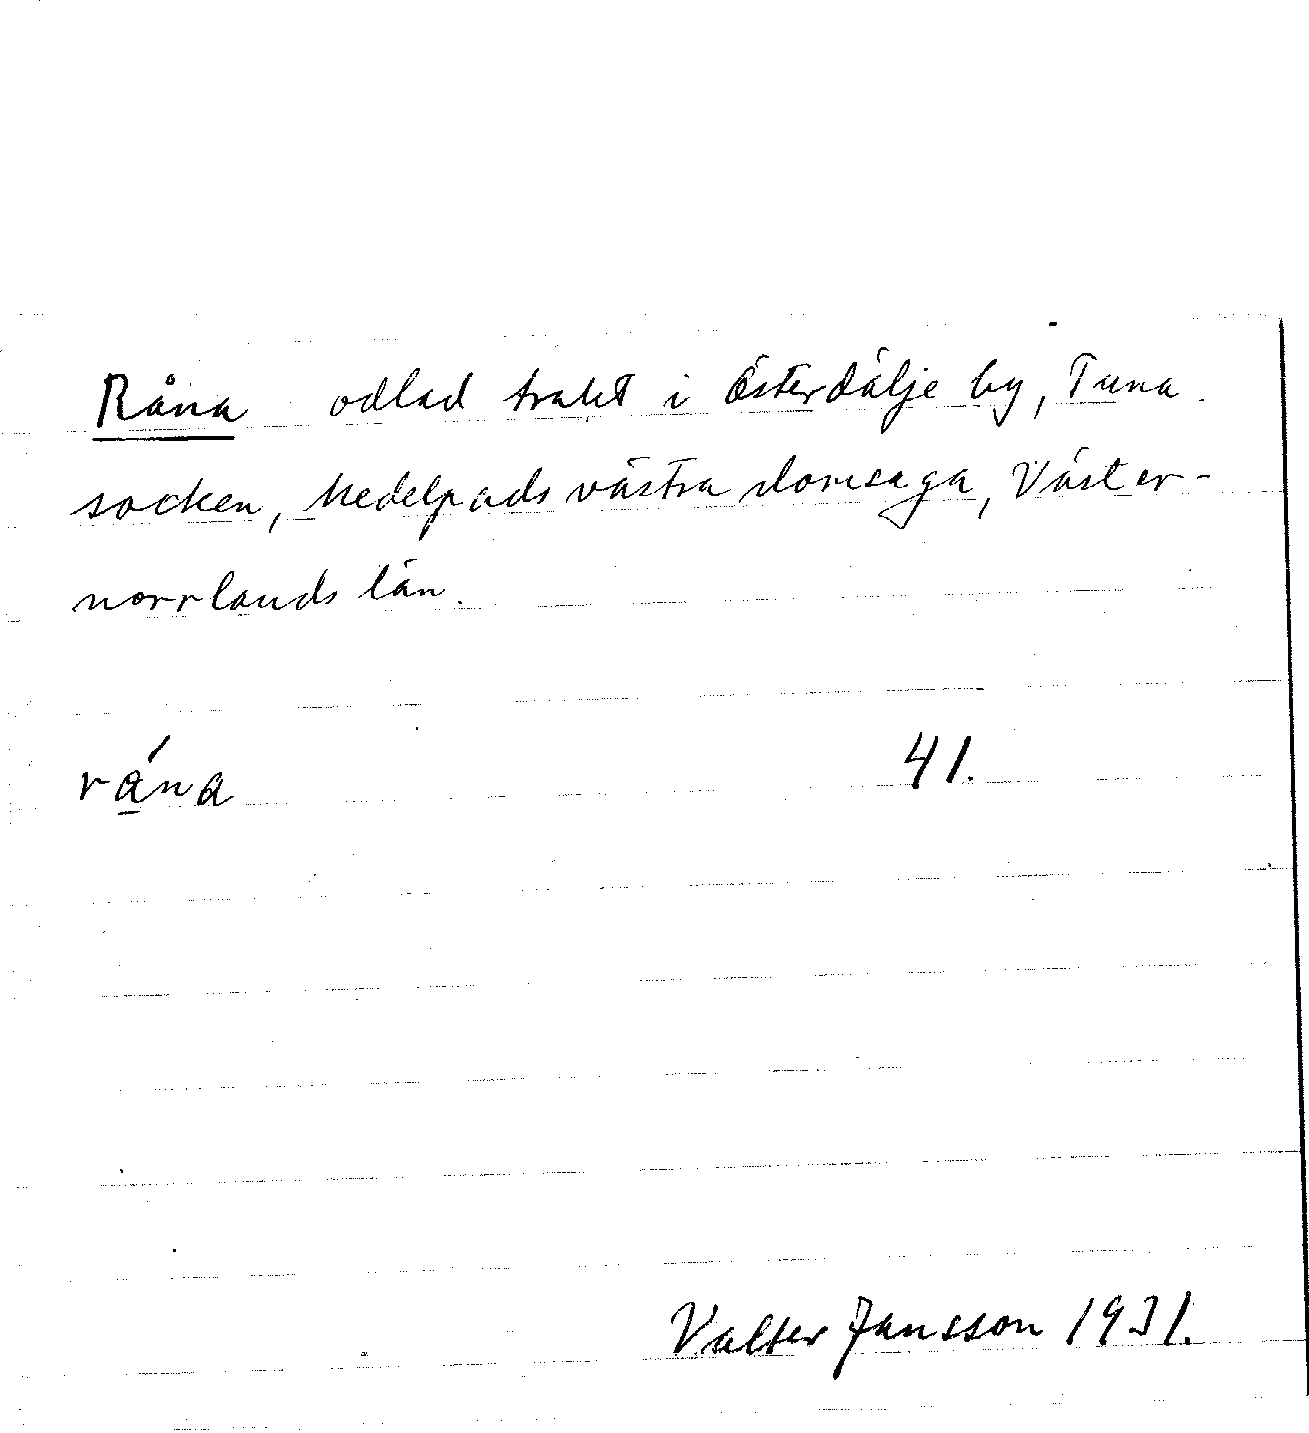 Råna odlad trakt i Österdälje by, Tuna
socken, Medelpads västra domsaga, Väster-
norrlands län.
rá̱na 41.
Valter Jansson 1931.